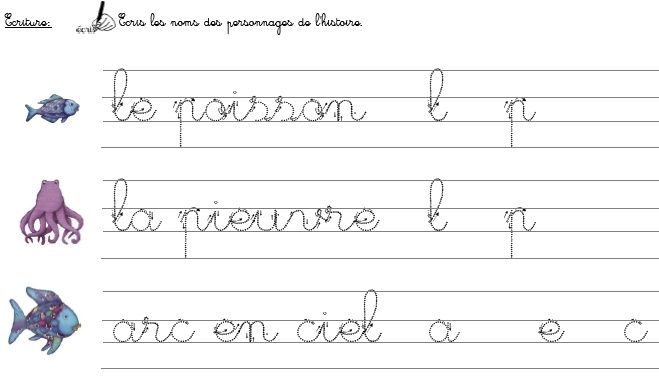 Ecriture: écris Ecris les noms des personnages de l'histoire.
le poisson l p
la pieuvre l p
arc en ciel a e c